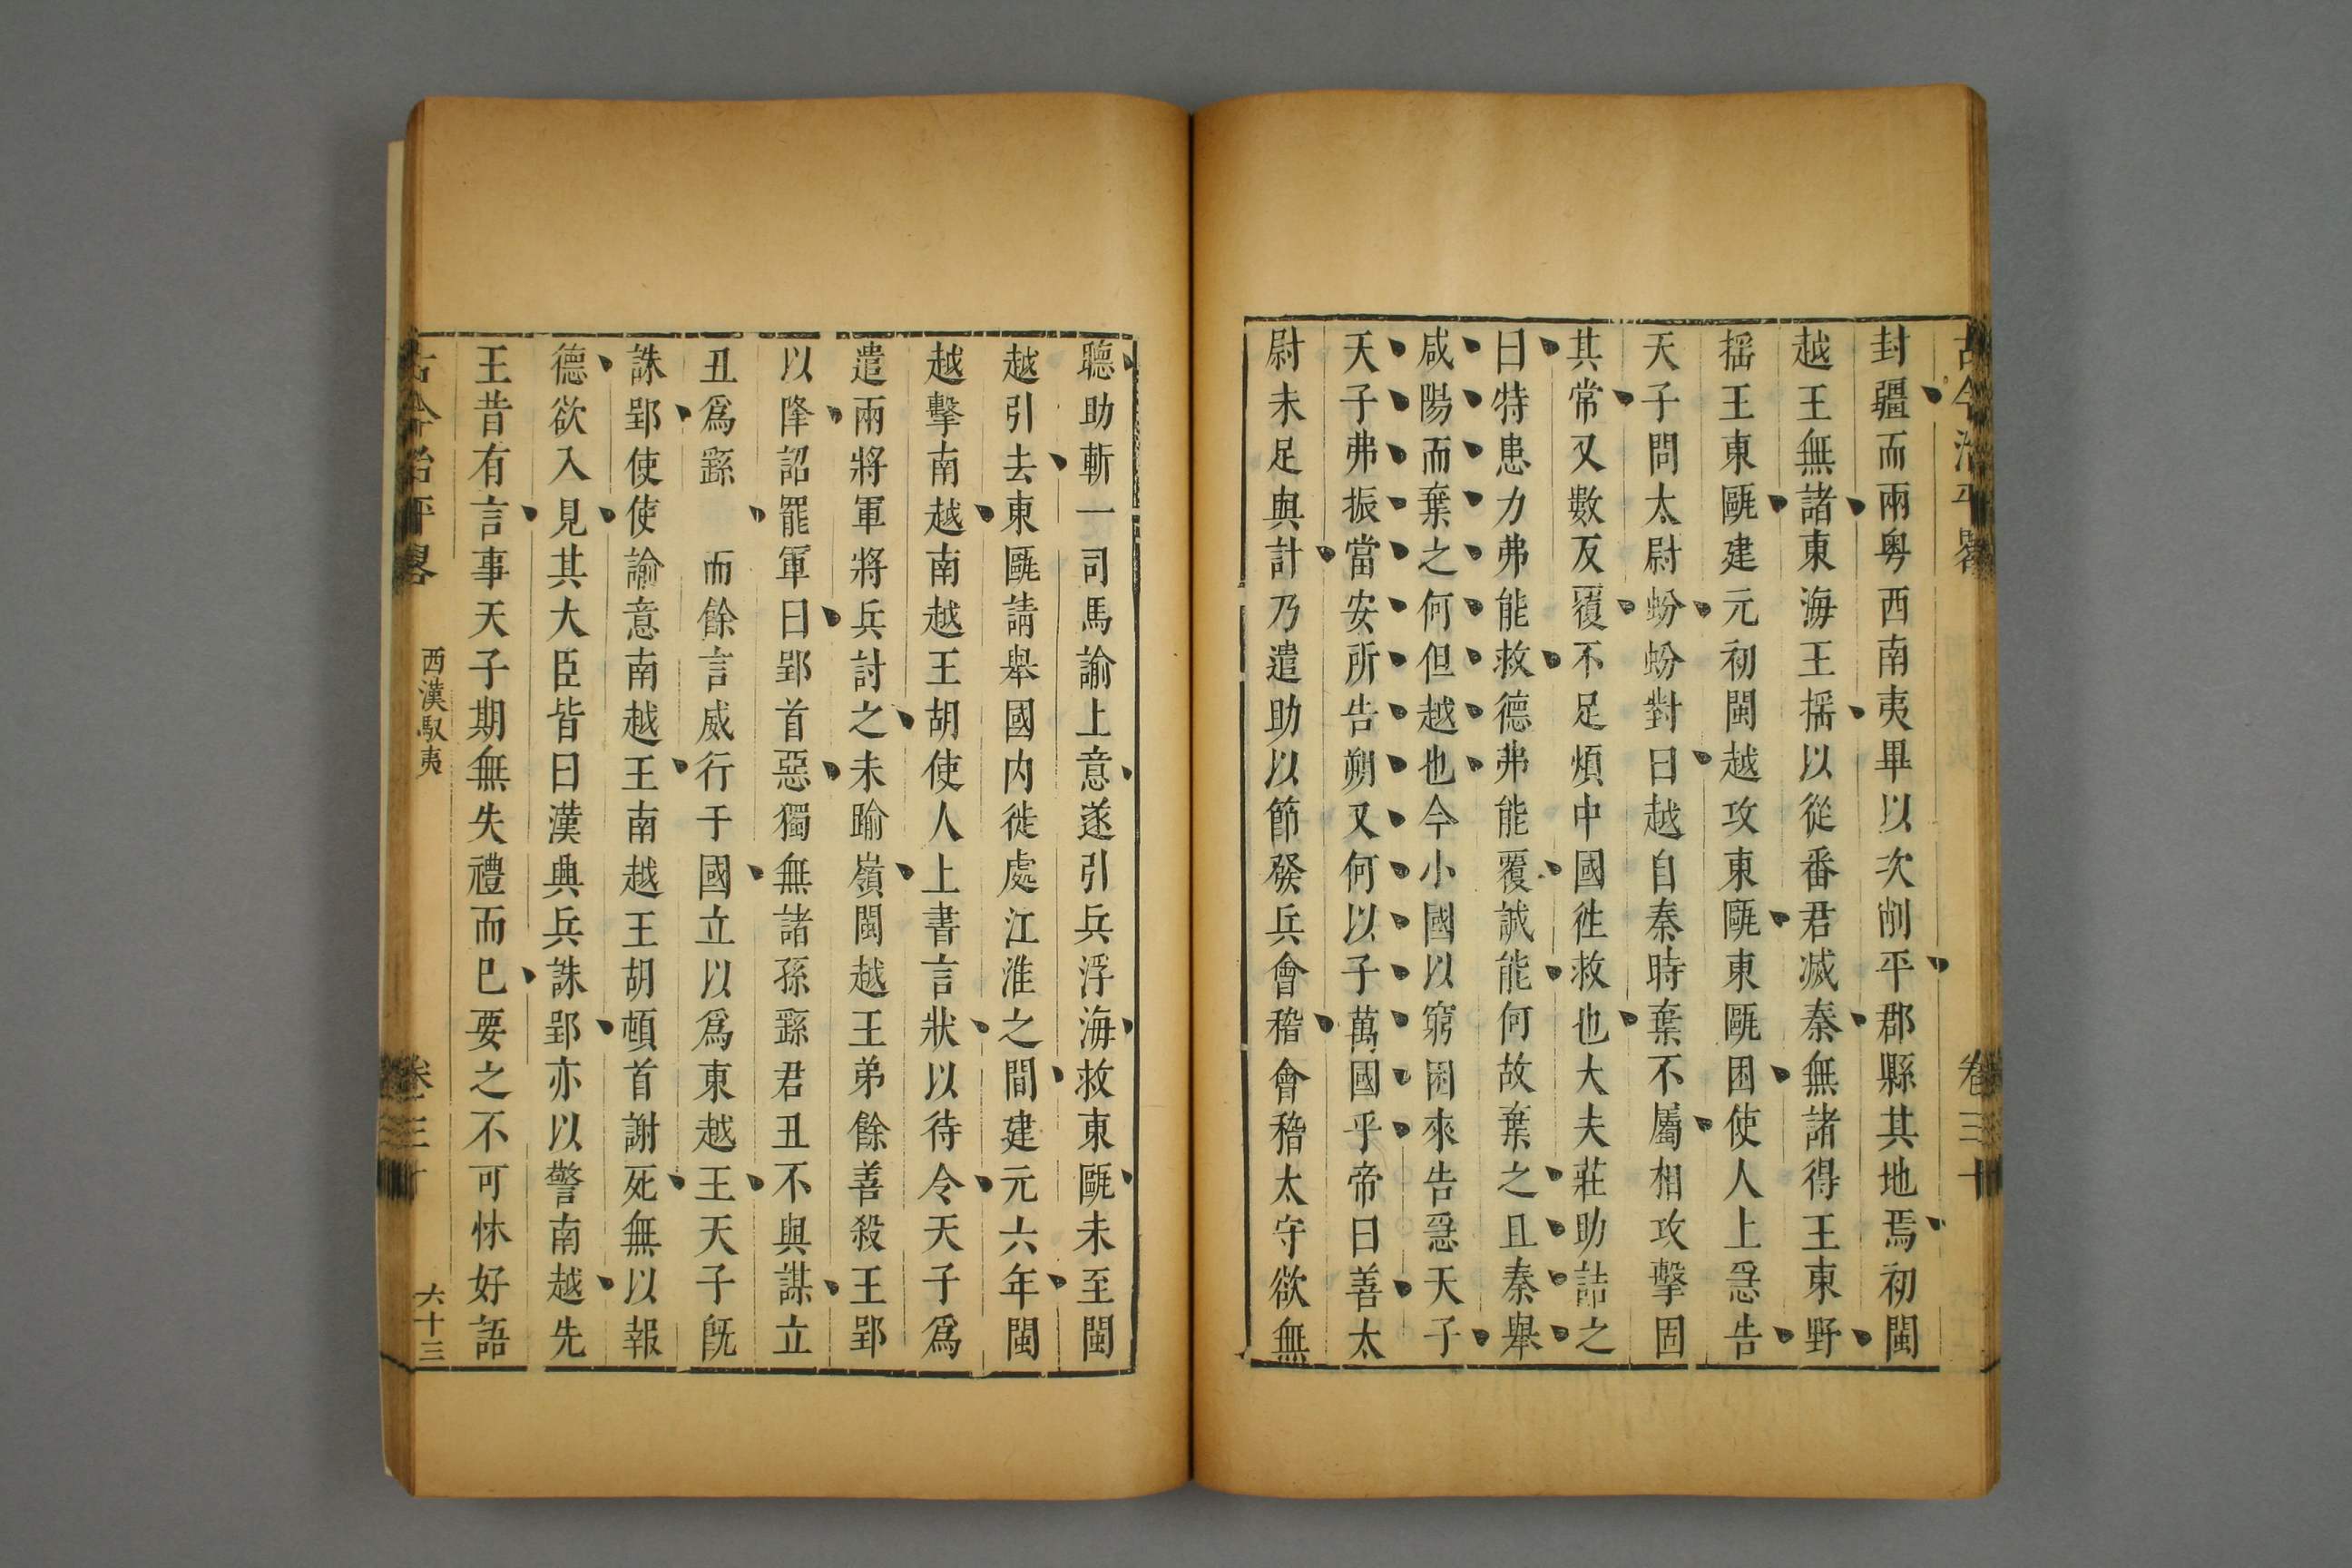 古今治平畧
卷三十
封疆而兩粤西南夷畢以次削平郡縣其地焉初閩
越王無諸東海王摇以從番君滅秦無諸得王東野
摇王東甌建元初閩越攻東甌東甌困使人上急告
天子問太尉蚡蚡對曰越自秦時棄不屬相攻擊固
其常又數反覆不足煩中國徃救也大夫莊助詰之
曰特患力弗能救德弗能覆誠能何故棄之且秦舉
咸陽而棄之何但越也今小國以窮困來告急天子
天子弗振當安所告朔又何以子萬國乎帝曰善太
尉未足與計乃遣助以節發兵會稽會稽太守欲無
聽助斬一司馬諭上意遂引兵浮海救東甌未至閩
越引去東甌請舉國内徙處江淮之間建元六年閩
越擊南越南越王胡使人上書言狀以待令天子爲
遣兩將軍將兵討之未踰嶺閩越王弟餘善殺王郢
以降詔罷軍曰郢首惡獨無諸孫繇君丑不與謀立
丑爲繇 而餘言威行于國立以爲東越王天子旣
誅郢使使諭意南越王南越王胡頓首謝死無以報
德欲入見其大臣皆曰漢典兵誅郢亦以警南越先
王昔有言事天子期無失禮而已要之不可怵好語
古今治平畧
西漢馭夷
卷三十
六十三